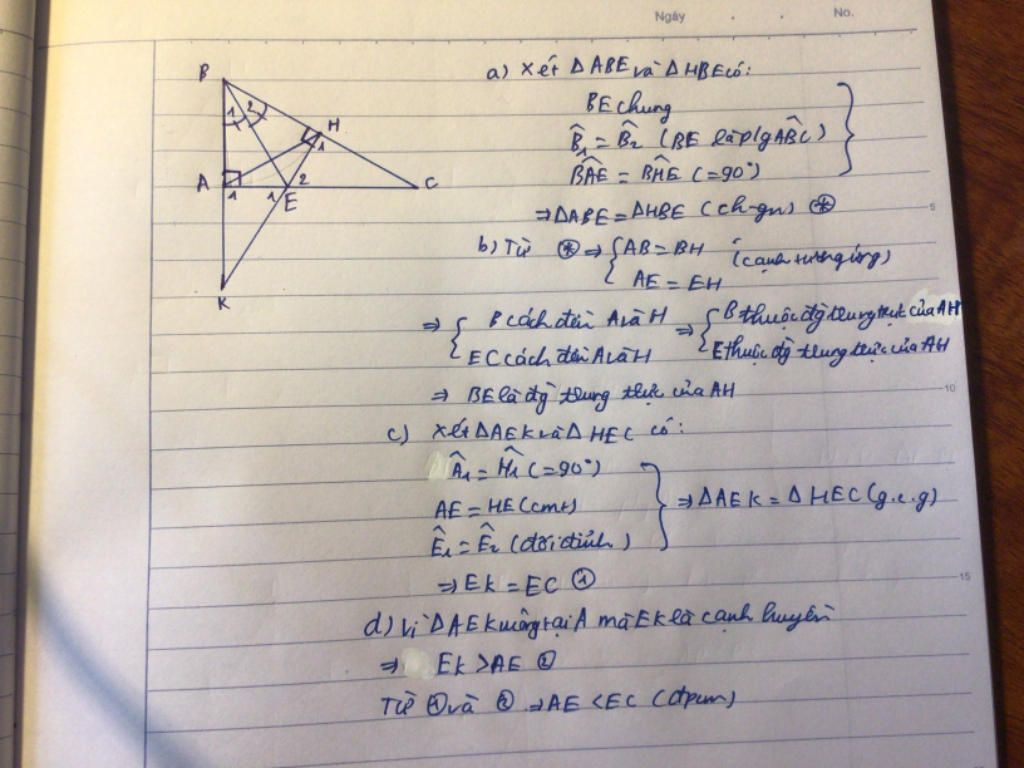 Ngày . . No.
B
1 2
H
1
A
1
1
2
E
C
K
a) Xét ΔABE và ΔHBE có:
BE chung
B̂₁ = B̂₂ (BE là p/g AB̂C)
BÂE = BĤE (=90°)
⇒ ΔABE = ΔHBE (ch-gn) (*)
5
b) Từ (*) ⇒ { AB = BH (cạnh tương ứng)
AE = EH
⇒ { B cách đều A và H ⇒ { B thuộc đg trung trực của AH
E C cách đều A và H E thuộc đg trung trực của AH
⇒ BE là đg trung trực của AH
10
c) Xét ΔAEK và ΔHEC có:
Â₁ = Ĥ₁ (=90°)
AE = HE (cmt)
Ê₁ = Ê₂ (đối đỉnh)
} ⇒ ΔAEK = ΔHEC (g.c.g)
⇒ EK = EC ①
15
d) Vì ΔAEK vuông tại A mà EK là cạnh huyền
⇒ EK > AE ②
Từ ① và ② ⇒ AE < EC (đpcm)